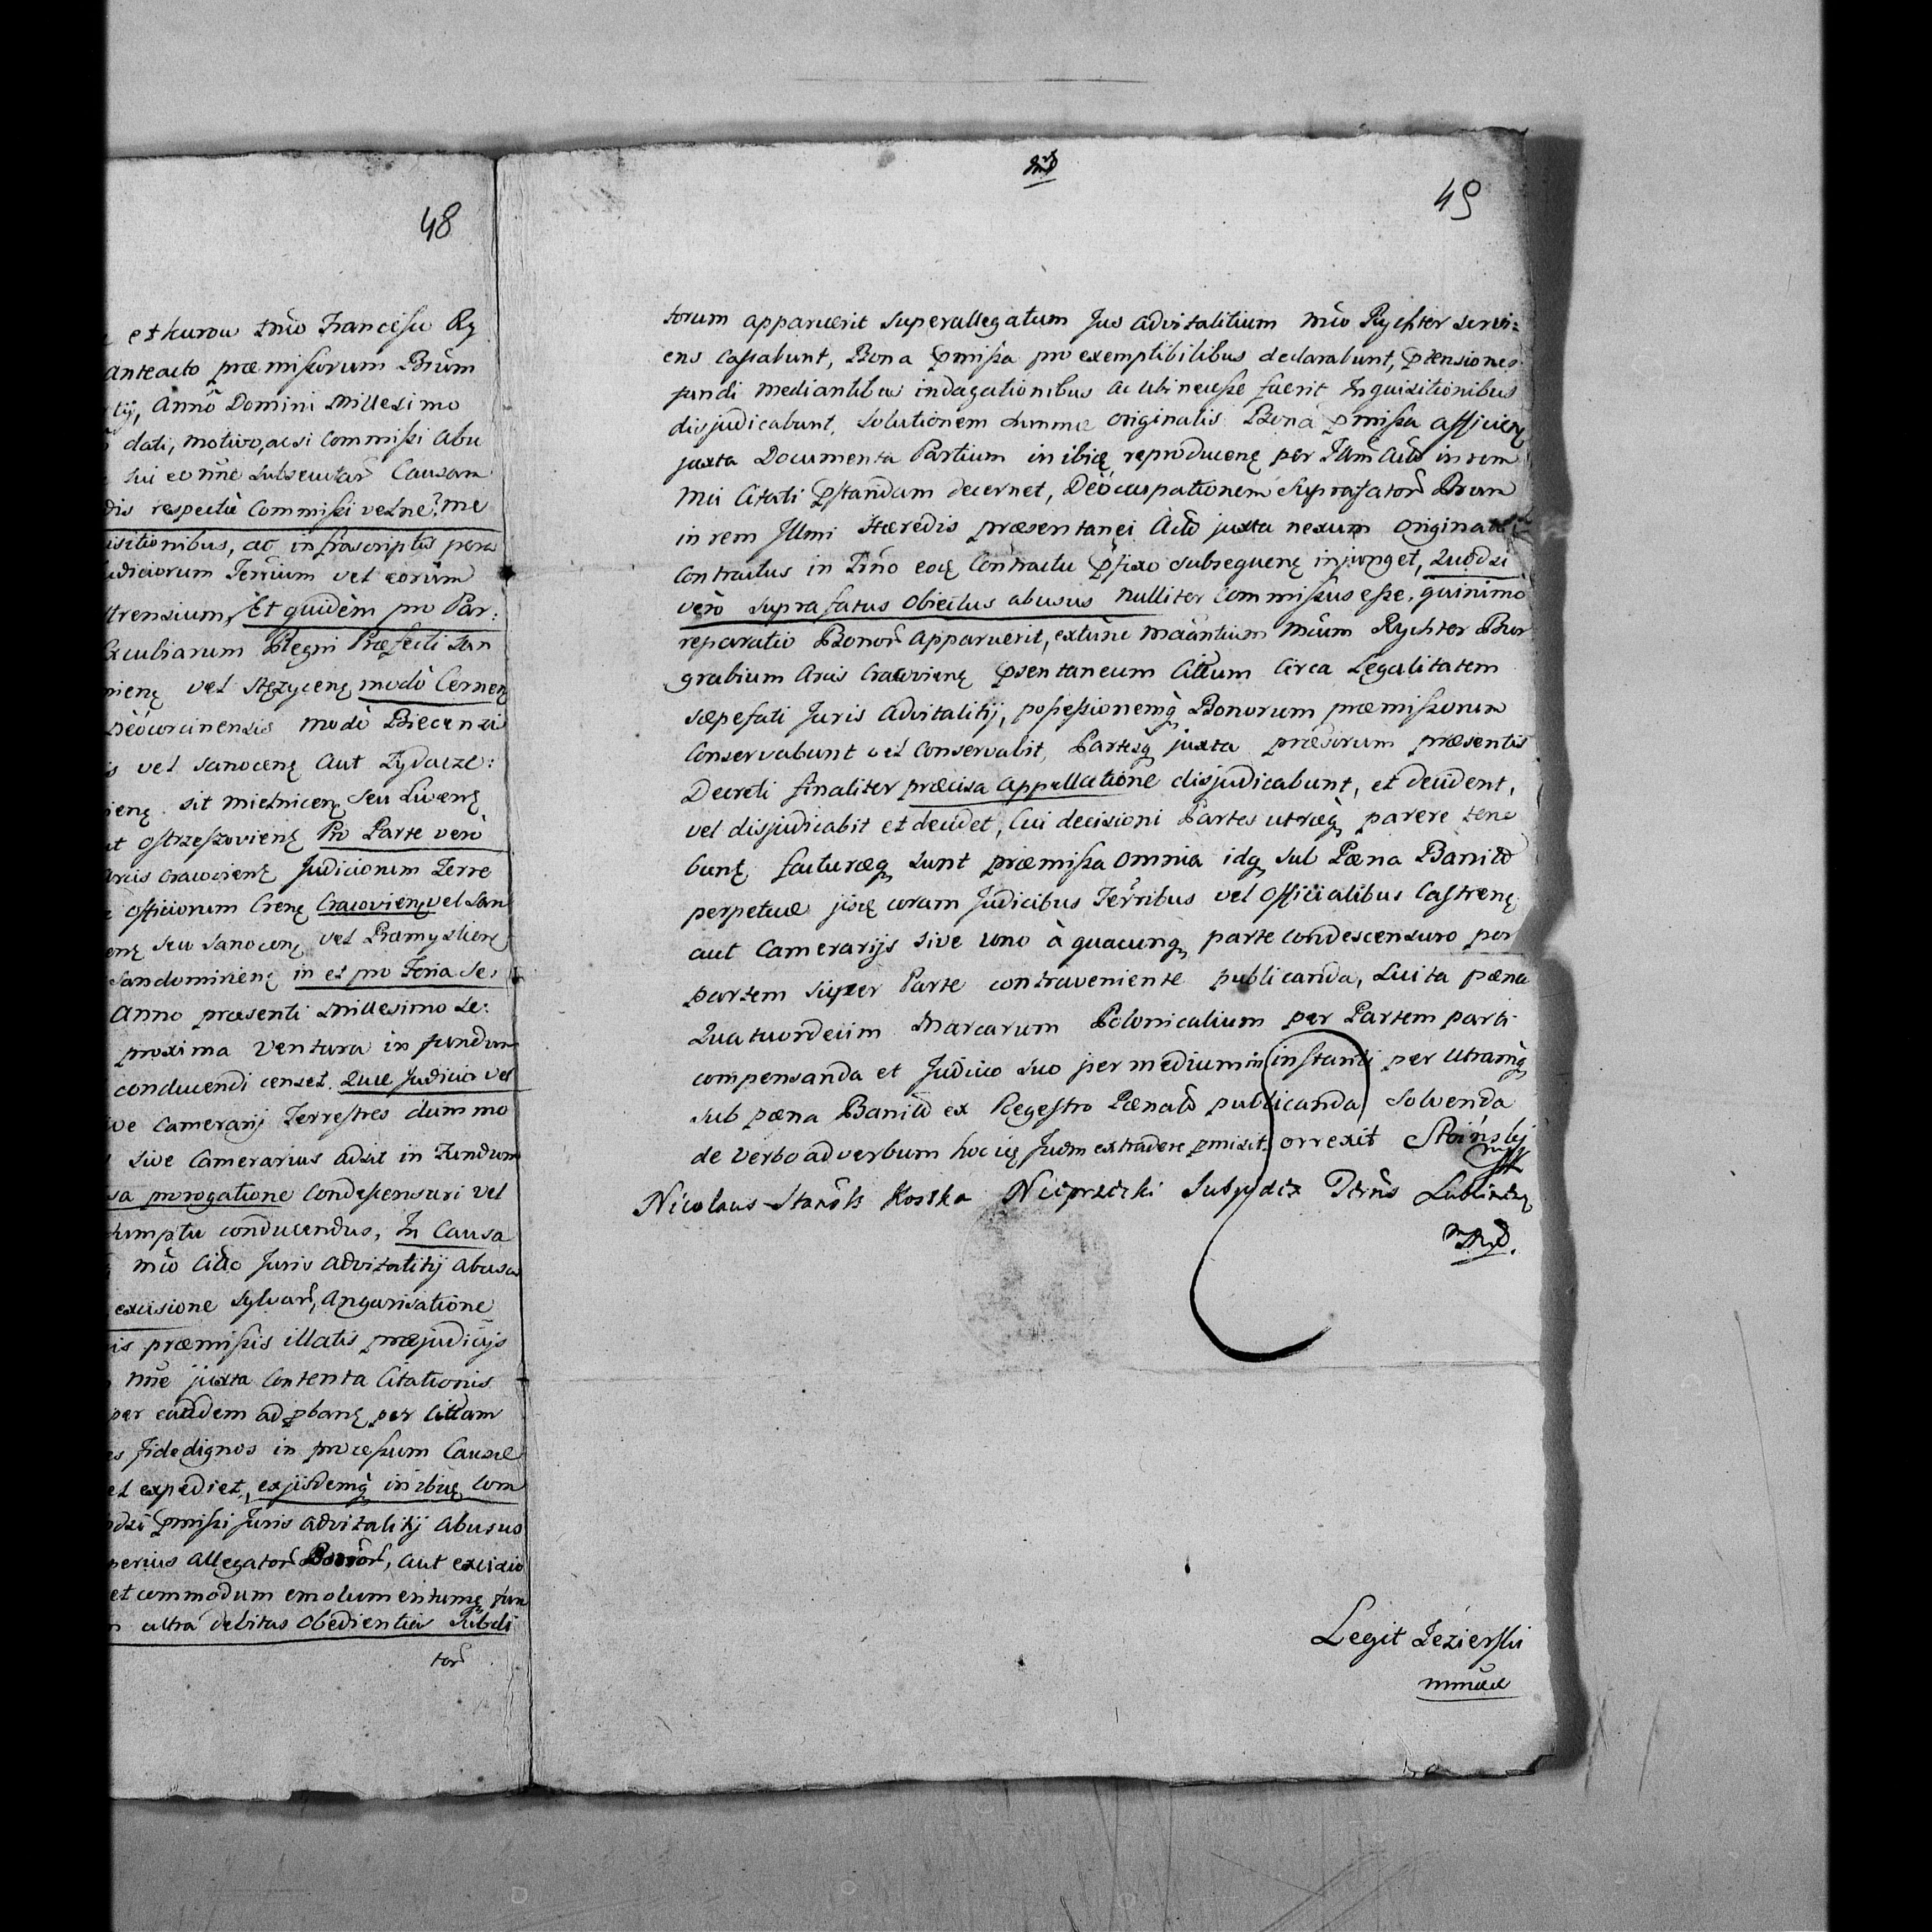 48
et kurow Mco Francisco Ry
anteacto præmissorum Bnum
Anno Domini Millesimo
dati, motivo, acsi Commissi abu
sui eo nne subsecutar Causam
respectu Commissi vel ne? me
isitionibus, ac infrascriptis pera
udiciorum Terrium vel eorum
strensium, Et quidem pro Par:
Regni Præfecti San
vel Stężycen modo Cernen
modo Biecensi
vel Sanocen aut Zydacze:
sit Mielnicen seu Liven
Ostrzeszovien Pro Parte vero
Arcis Cracovien Judiciorum Terre
Officiorum Cren Cracovien vel San
seu Sanocen vel Præmyslien
Sandomirien in et pro Feria Se:
Anno præsenti Millesimo Se:
proxima Ventura in fundum
conducendi censet. Quæ Judicia vel
Camerarij Terrestres dummo
sive Camerarius adsit in Fundum
prorogatione Condescensuri vel
sumptu conducendus, In Causa
Mco Citto Juris advitalitij abusus
excisione Sylvar, Angarisatione
præmissis illatis præjudicijs
nne juxta Contenta Citationis
per eundem ad pban per Cittam
fidedignos in processum Causæ
expediet, exjisdemq inibiq Com
pmissi Juris advitalitij abusus
allegator Bonor, aut excidio
et commodum emolumentumq
ultra debitas Obedientias Subdi
tor
49
torum apparuerit Superallegatum Jus advitalitium Mco Rychter servi=
ens Cassabunt, Bona pmissa pro exemptibilibus declarabunt, ptensiones
fundi mediantibus indagationibus ac ubi necesse fuerit Inquisitionibus
disjudicabunt, Solutionem Summæ Originalis Bona pmissa afficien
juxta Documenta Partium inibiq reproducen per Illm Actt in rem
Mci Citati pstandam decernet, Deoccupationem Suprafator Bnum
in rem Illmi Hæredis præsentanei Actt juxta nexum Originalis
Contractus in Tino eoq Contractu pfixo subsequen injunget, Quodsi
vero Suprafatus Obiectus abusus Nulliter Commissus esse, quinimo
reparatio Bonor apparuerit, extunc Maantium Mcum Rychter Bur
grabium Arcis Cracovien psentaneum Cittum Circa Legalitatem
sæpefati Juris Advitalitij, possessionemq Bonorum præmissorum
Conservabunt vel Conservabit, Partesq juxta præsorum præsentis
Decreti finaliter præcisa appellatione disjudicabunt, et decident,
vel disjudicabit et decidet, Cui decisioni Partes utræq parere tene
bunt facturæq sunt præmissa omnia idq sub Pæna Bannitt
perpetuæ jisq coram Judicibus Terribus vel Officialibus Castren
aut Camerarijs sive uno à quacunq parte condescensuro per
partem super Parte contraveniente publicanda, Luita pæna
Quatuordecim Marcarum Polonicalium per Partem parti
compensanda et Judicio suo per medium in instanti per Utramq
sub pæna Bannitt ex Regestro Pænatt publicanda Solvenda
de verbo ad verbum hoc extradere pmisit. orrexit Stoinsky
Nicolaus Stanöls Kostka Nieprzecki Subjudex Tërrs Lublinen
mpd.
Legit Jezierski
mmxx